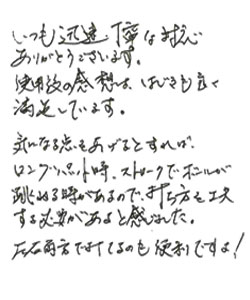 いつも迅速丁寧な対応
ありがとうございます。
使用後の感想は、はじきも良く
満足しています。
気になる点をあげるとすれば、
ロングパット時、ストロークでボールが
跳ねる時があるので、打ち方を工夫
する必要があると感じました。
左右両方で打てるのも便利ですよ!